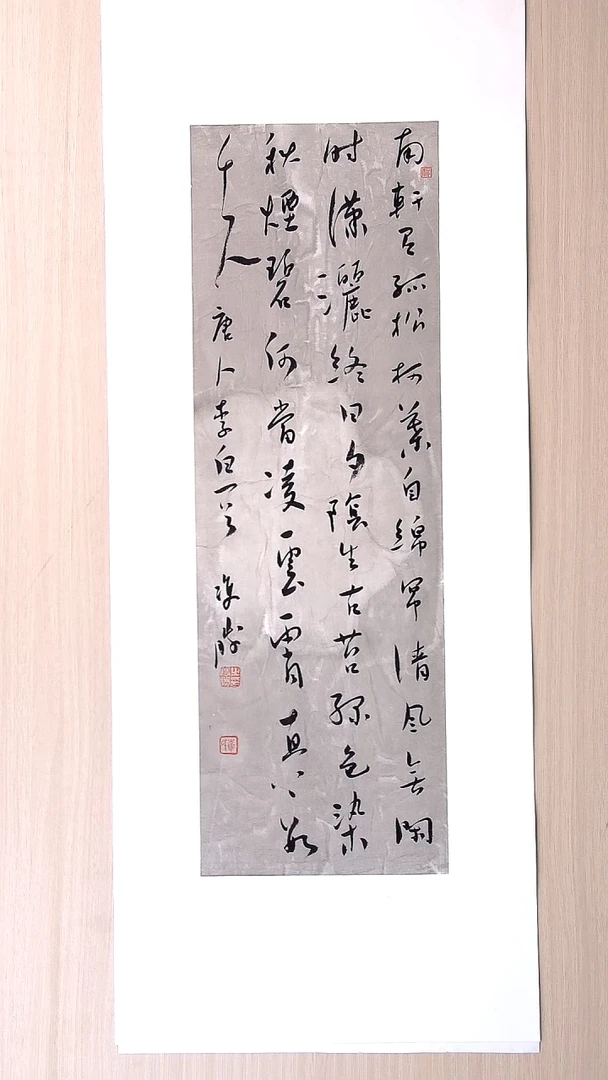 南軒有孤松柯葉自綿冪清風無閑
时瀟灑終日夕陰生古苔綠色染
秋煙碧何當凌雲霄直上數
千尺 唐人李白一首